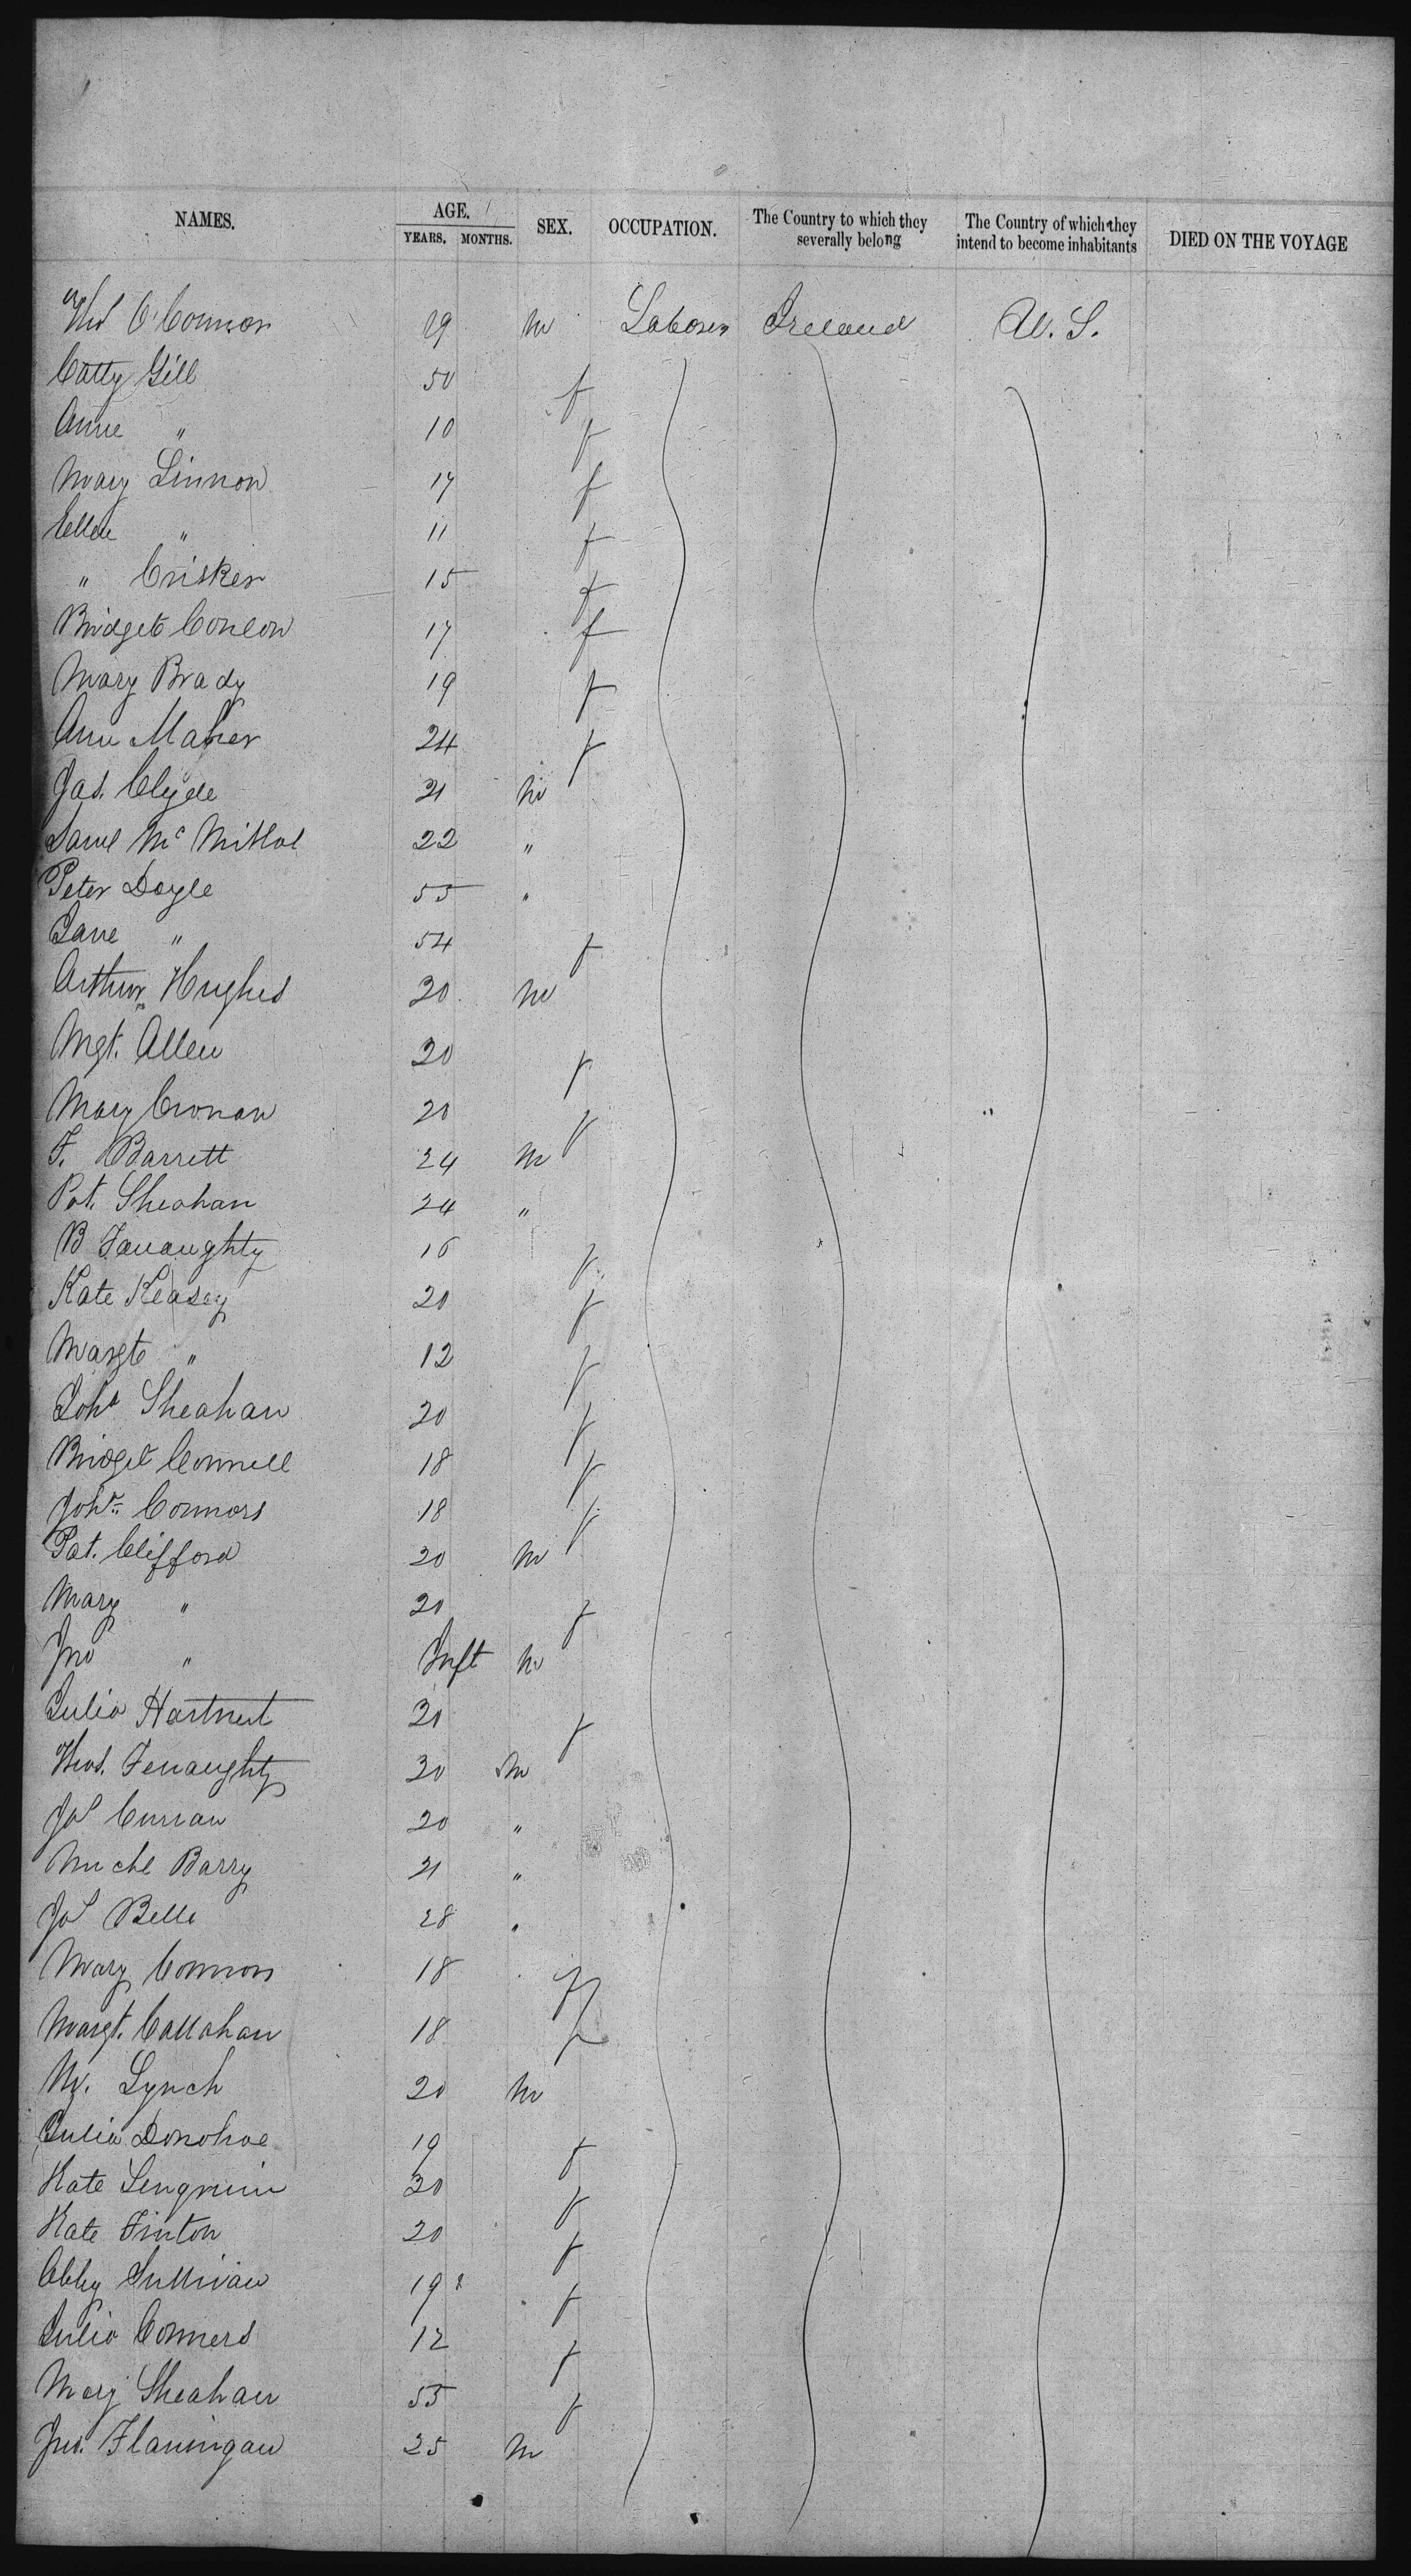 NAMES. AGE. YEARS. MONTHS. SEX. OCCUPATION. The Country to which they severally belong The Country of which they intend to become inhabitants DIED ON THE VOYAGE
Thos O'Connor 19 m Laborer Ireland U.S.
Catty Gill 50 f
Anne " 10 f
Mary Linnon 17 f
Ellen " 11 f
" Crisker 15 f
Bridget Conlon 17 f
Mary Brady 19 f
Ann Maher 24 f
Jas. Clyde 21 m
Saml Mc 22 "
Peter Doyle 55 "
Jane " 54 f
Arthur Hughes 30 m
Mgt. Allen 20 f
Mary Cronan 20 f
F. Barrett 24 m
Pat. Sheahan 24 "
B Fanaughty 16 f
Kate Keasey 20 f
Margt " 12 f
Joha Sheahan 20 f
Bridget Connell 18 f
Joha Connors 18 f
Pat. Clifford 20 m
Mary " 20 f
Jno " Inft m
Julia Hartnett 20 f
Thos. Fenaughty 30 m
Jas Curran 20 "
Michl Barry 21 "
Jas Bell 28 "
Mary Connors 18 f
Margt. Callahan 18 f
M. Lynch 20 m
Julia Donohoe 19 f
Kate 20 f
Kate Finton 20 f
Abby Sullivan 19 f
Julia Conners 12 f
Mary Sheahan 55 f
Jno. Flanningan 25 m